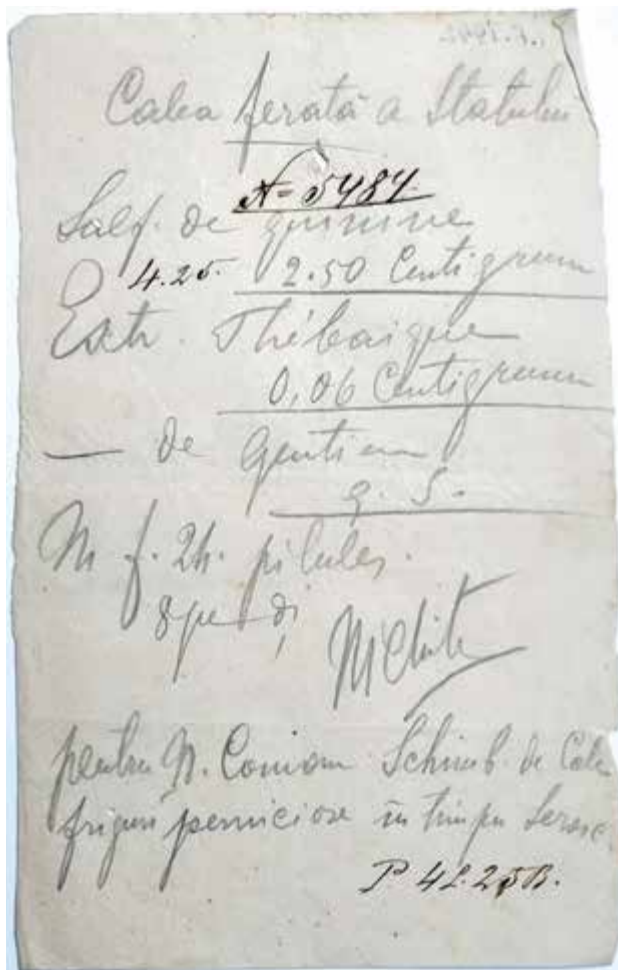 Calea ferată a Statului
N= 5484.
Sulf. de quinine
4.25. 2.50 Centigram
Extr. Thébaique
0,06 Centigram
— de gentian
q. S.
M f. 24. pilules.
8 pe di
pentru N. Schimb. de Cale
friguri perniciose in timpu
P 4L.25B.